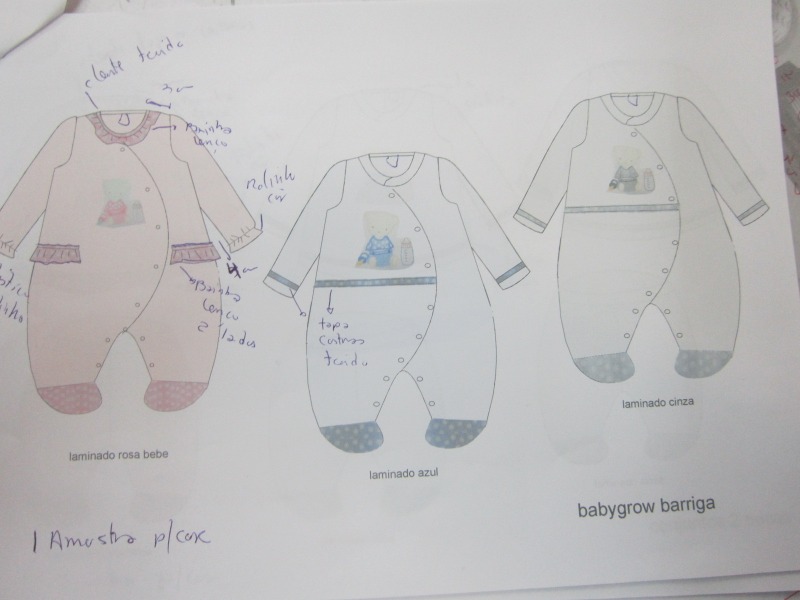 tecido
3 cm
bainha
lenço
Rolinho
cor
4 cm
bainha
lenço
2 lados
tapa
costuras
tecido
laminado rosa bebe
laminado azul
laminado cinza
babygrow barriga
1 Amostra p/cor